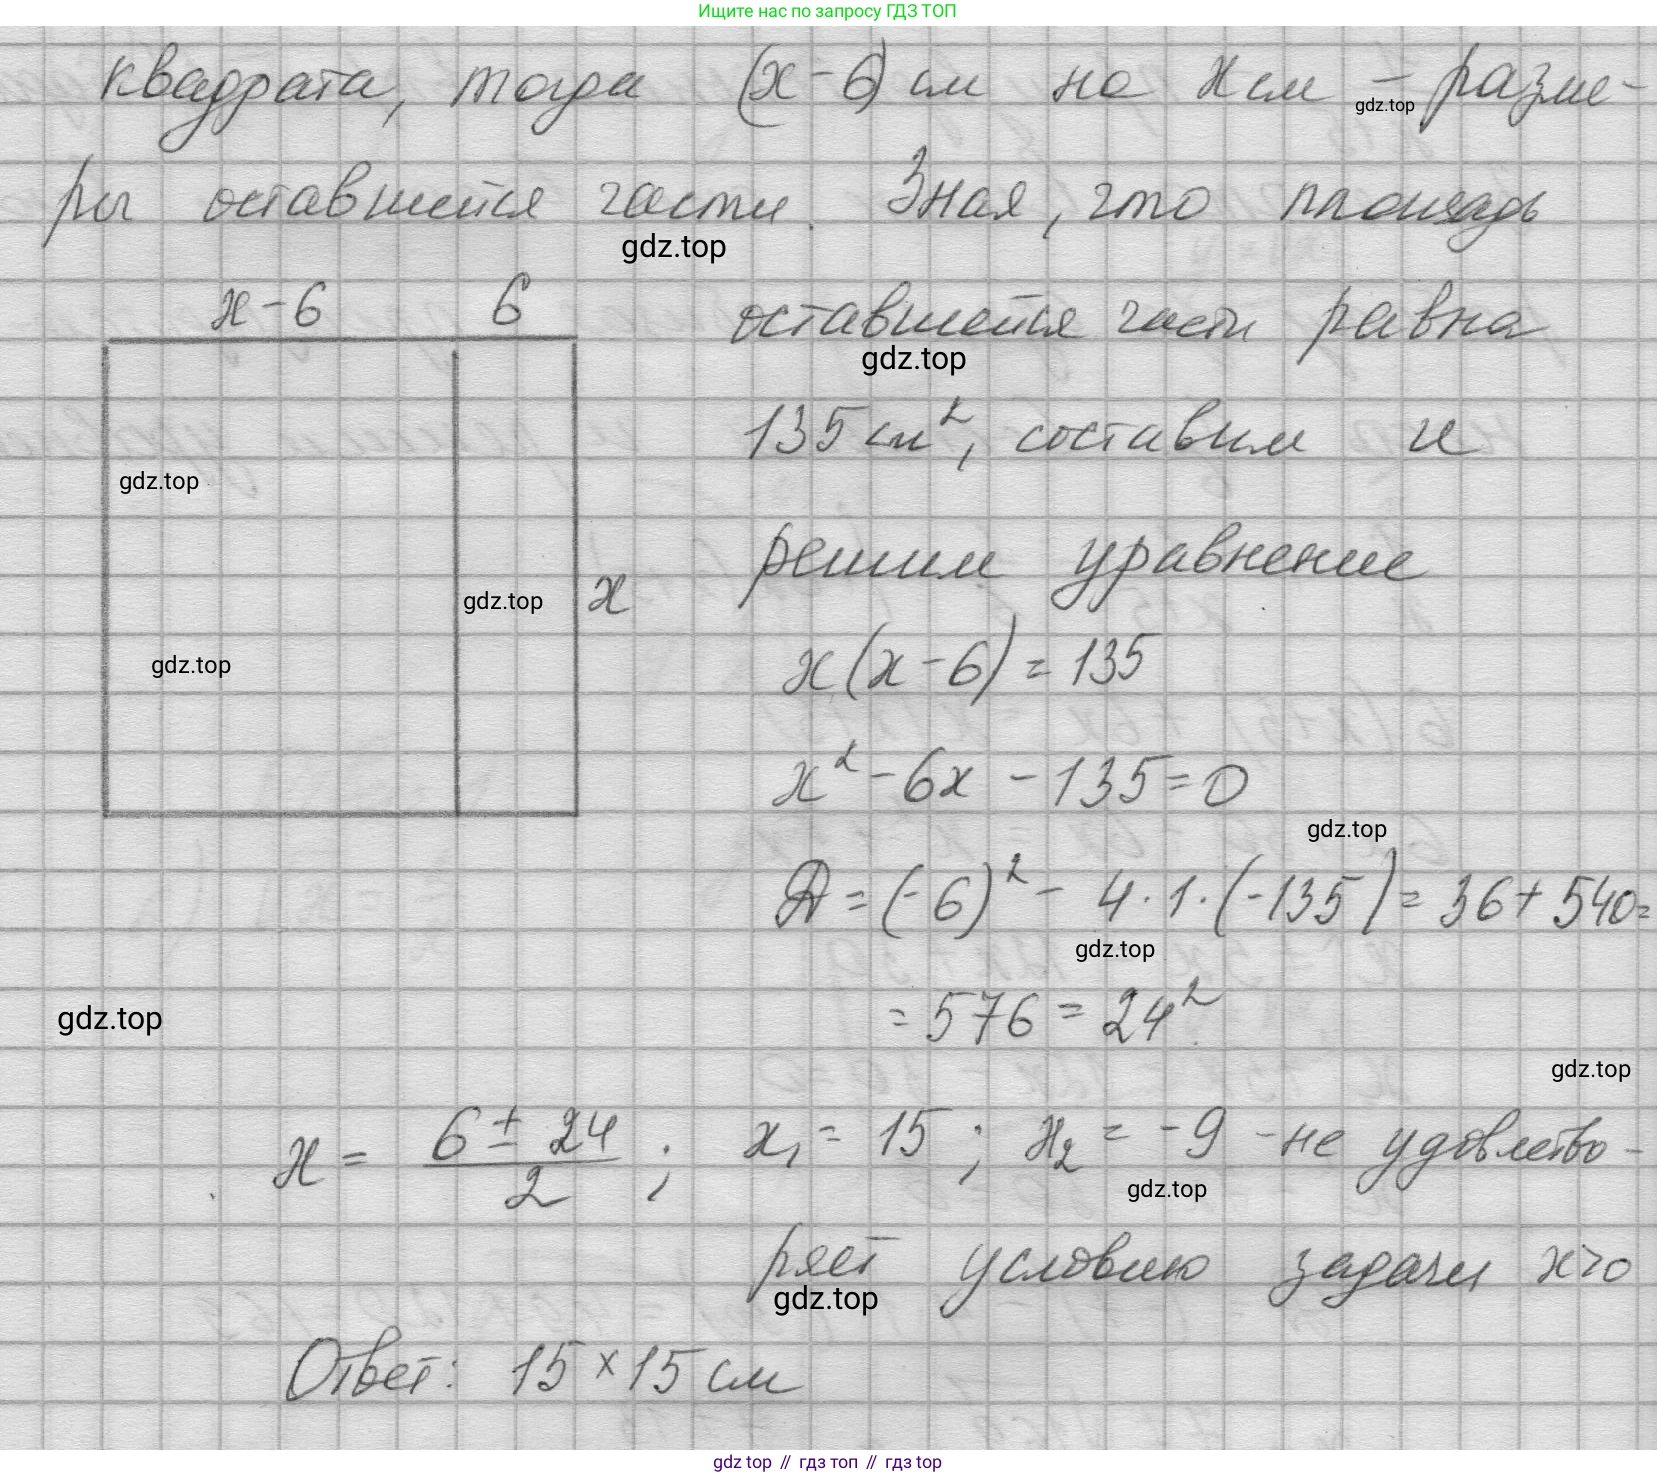 Ищите нас по запросу ГДЗ ТОП
квадрата, тогда (x-6) см на x см - разме-
gdz.top
ры оставшейся части. Зная, что площадь
gdz.top
x-6 6
оставшейся части равна
gdz.top
135 см², составим и
gdz.top
решим уравнение
gdz.top
x
x(x-6)=135
gdz.top
x²-6x-135=0
gdz.top
D=(-6)²-4·1·(-135)=36+540=
gdz.top
=576=24²
gdz.top
gdz.top
x=(6±24)/2; x₁=15; x₂=-9 -не удовлетво-
gdz.top
ряет условию задачи x>0
gdz.top
Ответ: 15×15 см
gdz.top // гдз топ // гдз top